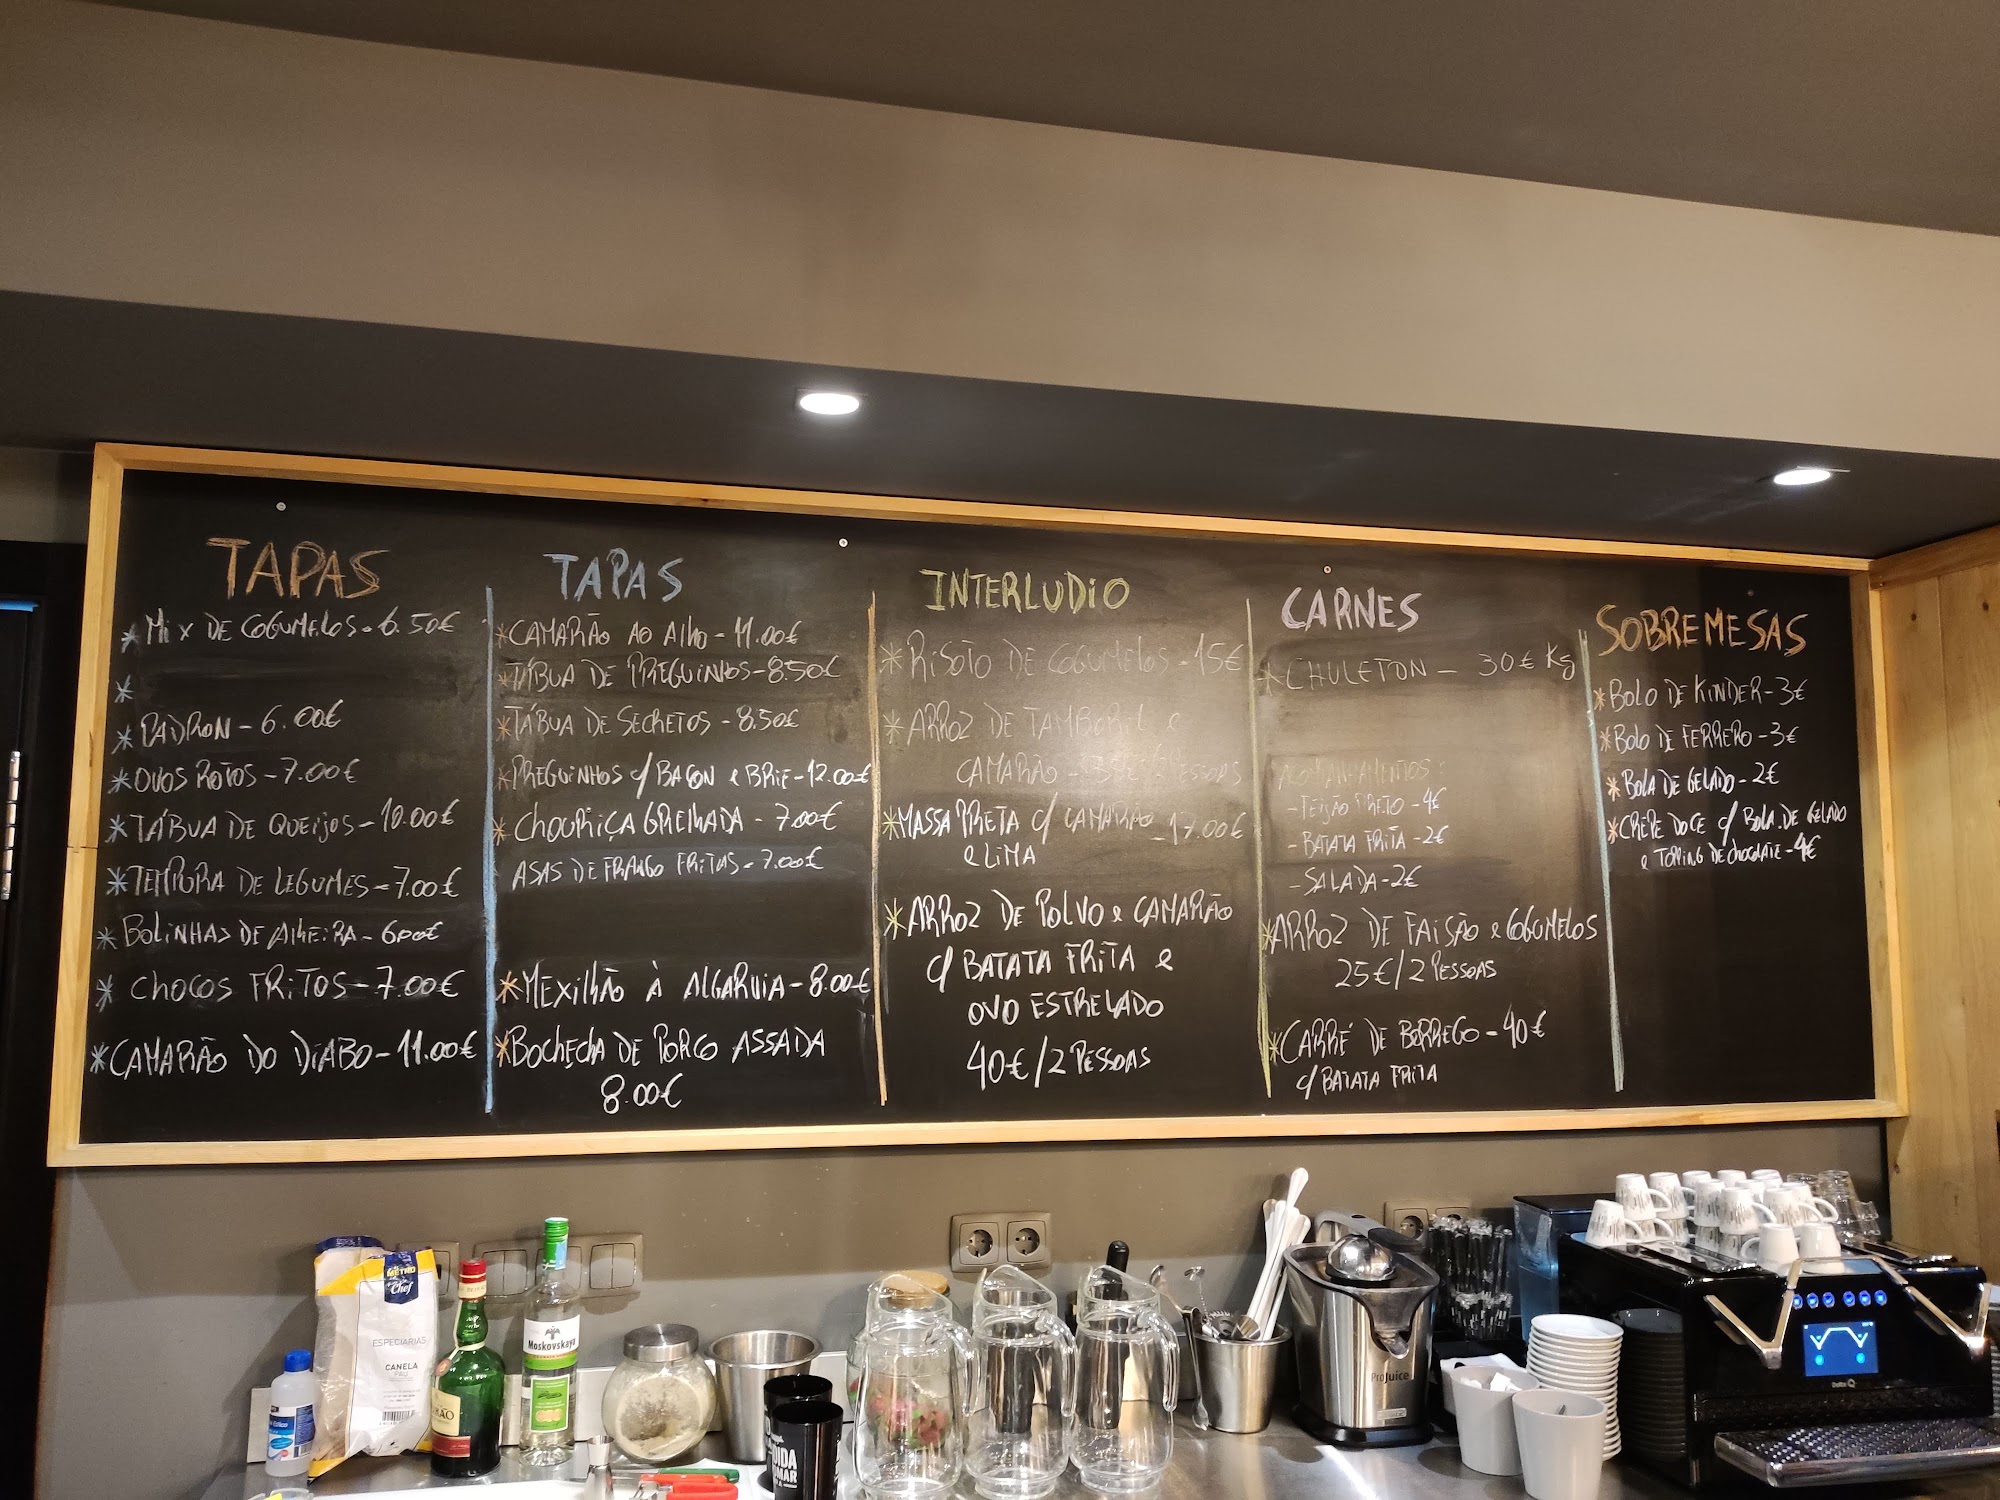 TAPAS
* MIX DE COGUMELOS - 6.50€
*
* PADRON - 6.00€
* OVOS ROTOS - 7.00€
* TÁBUA DE QUEIJOS - 10.00€
* TEMPURA DE LEGUMES - 7.00€
* BOLINHAS DE ALHEIRA - 6.00€
* CHOCOS FRITOS - 7.00€
* CAMARÃO DO DIABO - 11.00€
TAPAS
* CAMARÃO AO ALHO - 11.00€
* TÁBUA DE PREGUINHOS - 8.50€
* TÁBUA DE SECRETOS - 8.50€
* PREGUINHOS C/ BACON e BRIE - 12.00€
* CHOURIÇA GRELHADA - 7.00€
ASAS DE FRANGO FRITAS - 7.00€
* MEXILHÃO À ALGARVIA - 8.00€
* BOCHECHA DE PORCO ASSADA
8.00€
INTERLUDIO
* RISOTO DE COGUMELOS - 15€
* ARROZ DE TAMBORIL e
CAMARÃO PESSOAS
* MASSA PRETA C/ CAMARÃO - 17.00€
e LIMA
* ARROZ DE POLVO e CAMARÃO
C/ BATATA FRITA e
OVO ESTRELADO
40€/2 PESSOAS
CARNES
* CHULETON - 30€ Kg
ACOMPANHAMENTOS:
- FEIJÃO PRETO - 4€
- BATATA FRITA - 2€
- SALADA - 2€
* ARROZ DE FAISÃO e COGUMELOS
25€/2 PESSOAS
* CARRÉ DE BORREGO - 40€
C/ BATATA FRITA
SOBREMESAS
* BOLO DE KINDER - 3€
* BOLO DE FERRERO - 3€
* BOLA DE GELADO - 2€
* CREPE DOCE C/ BOLA DE GELADO
e TOPPING DE CHOCOLATE - 4€
METRO
Chef
ESPECIARIAS
CANELA
PAU
Moskovskaya
ProJuice
Delta Q